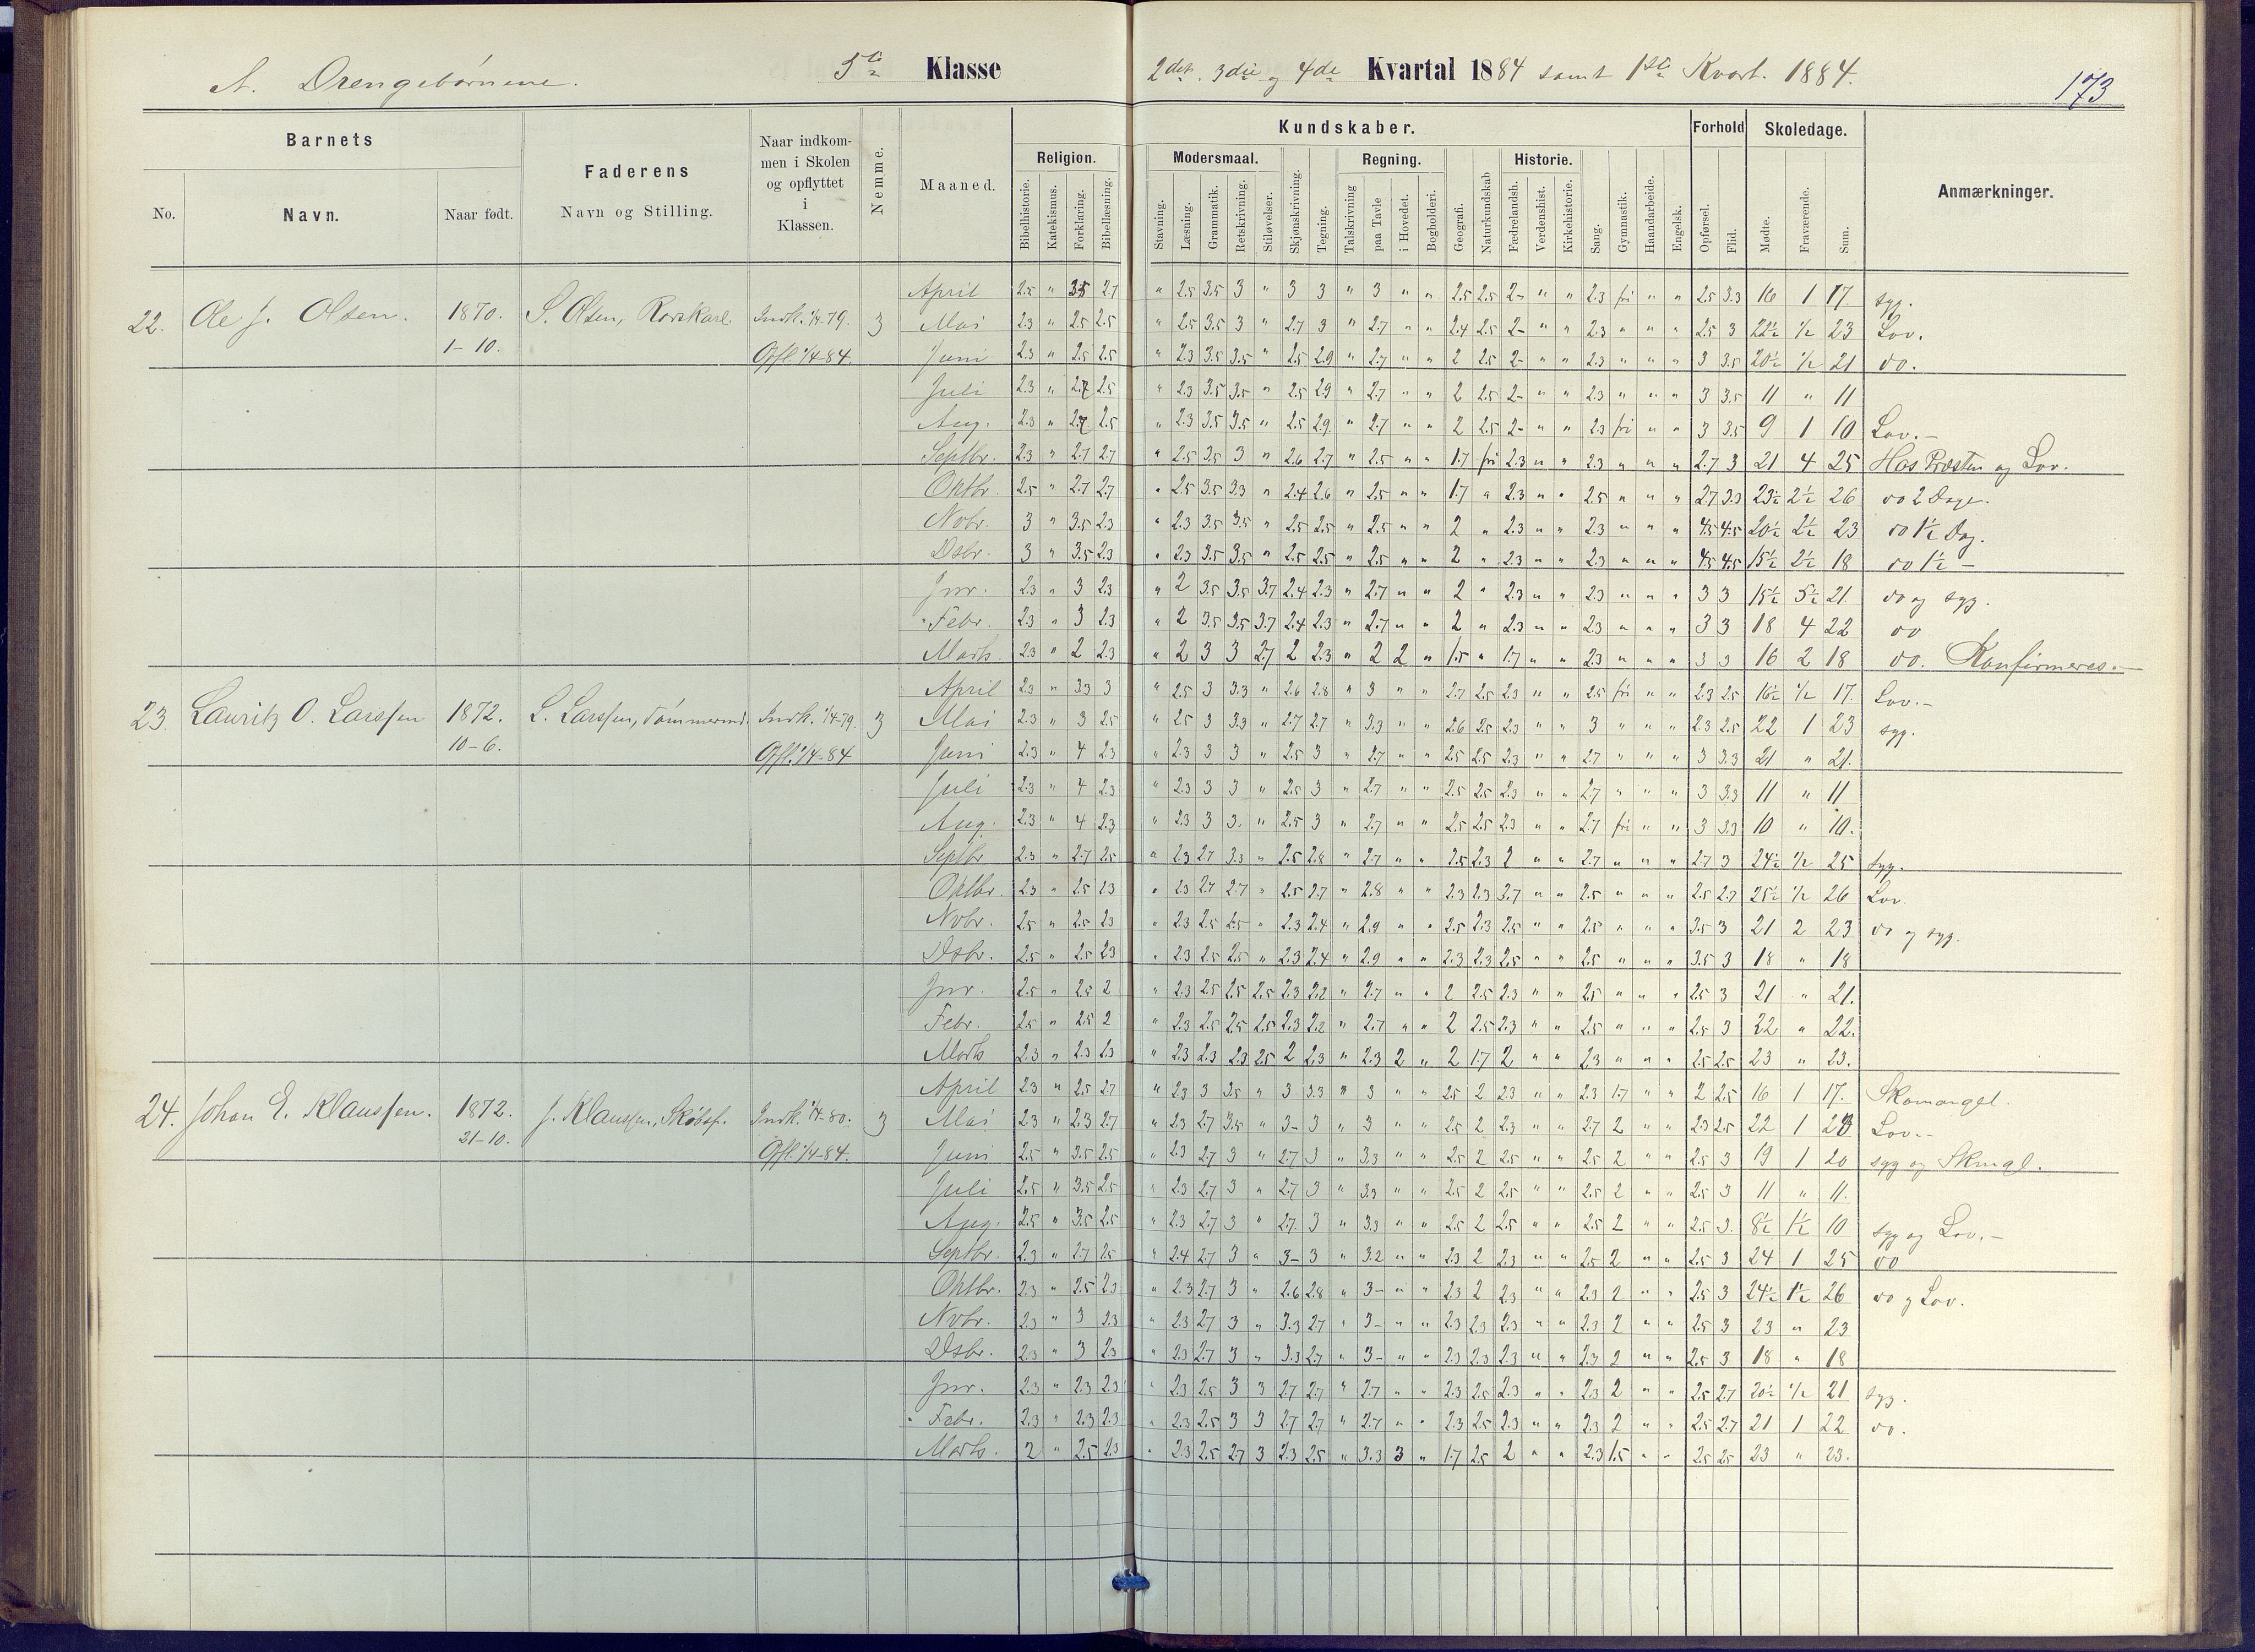 A. Drengebørnene. 5te Klasse 2det, 3die og 4de Kvartal 1884 samt 1ste Kvart. 1884. 173
Barnets
No. Navn. Naar født.
Faderens
Navn og Stilling.
Naar indkom-
men i Skolen
og opflyttet
i
Klassen.
Nemme.
Maaned.
Kundskaber.
Religion.
Bibelhistorie. Katekismus. Forklaring. Bibellæsning.
Modersmaal.
Stavning. Læsning. Grammatik. Retskrivning. Stiløvelser.
Skjønskrivning. Tegning.
Regning.
Talskrivning paa Tavle i Hovedet. Bogholderi.
Geografi. Naturkundskab
Historie.
Fædrelandsh. Verdenshist. Kirkehistorie.
Sang. Gymnastik. Haandarbeide. Engelsk.
Forhold
Opførsel. Flid.
Skoledage.
Mødte. Fraværende. Sum.
Anmærkninger.
April 2.5 " 3.5 2.7 " 2.5 3.5 3 " 3 3 " 3 " " 2.5 2.5 2- " " 2.3 fri " " 2.5 3.3 16 1 17. syg.
22. Ole J. Olsen. 1870. S. Olsen, Rorskarl. Indk. 1/4-79. 3 Mai 2.3 " 2.5 2.5 " 2.5 3.5 3 " 2.7 3 " 2.7 " " 2.4 2.5 2- " " 2.3 " " " 2.5 3 22½ ½ 23 Lov.
1-10. Opfl. 1/4-84. Juni 2.3 " 2.5 2.5 " 2.3 3.5 3.5 " 2.5 2.9 " 2.7 " " 2 2.5 2- " " 2.3 " " " 3 3.5 20½ ½ 21 do.
Juli 2.3 " 2.7 2.5 " 2.3 3.5 3.5 " 2.5 2.9 " 2.7 " " 2 2.5 2- " " 2.3 " " " 3 3.5 11 " 11
Aug. 2.3 " 2.7 2.5 " 2.3 3.5 3.5 " 2.5 2.9 " 2.7 " " 2 2.5 2- " " 2.3 fri " " 3 3.5 9 1 10 Lov.-
Septbr. 2.3 " 2.7 2.7 " 2.5 3.5 3 " 2.6 2.7 " 2.5 " " 1.7 fri 2.3 " " 2.3 " " " 2.7 3 21 4 25 Hos Præsten og Lov.
Oktbr. 2.5 " 2.7 2.7 " 2.5 3.5 3.3 " 2.4 2.6 " 2.5 " " 1.7 " 2.3 " " 2.5 " " " 2.7 3.3 23½ 2½ 26 do 2 Dage.
Novbr. 3 " 3.5 2.3 " 2.3 3.5 3.5 " 2.5 2.5 " 2.5 " " 2 " 2.3 " " 2.3 " " " 4.5 4.5 20½ 2½ 23 do 1½ Dag.
Dsbr. 3 " 3.5 2.3 " 2.3 3.5 3.5 " 2.5 2.5 " 2.5 " " 2 " 2.3 " " 2.3 " " " 4.5 4.5 15½ 2½ 18 do 1½ -
Jnr. 2.3 " 3 2.3 " 2 3.5 3.5 3.7 2.4 2.3 " 2.7 " " 2 " 2.3 " " 2.3 " " " 3 3 15½ 5½ 21. do og syg.
Febr. 2.3 " 3 2.3 " 2 3.5 3.5 3.7 2.4 2.3 " 2.7 " " 2 " 2.3 " " 2.3 " " " 3 3 18 4 22 do
Marts. 2.3 " 2 2.3 " 2 3 3 2.7 2 2.3 " 2 2 " 1.5 " 1.7 " " 2.3 " " " 3 3 16 2 18 do. Konfirmeres.-
April 2.3 " 3.3 3 " 2.5 3 3.3 " 2.6 2.8 " 3 " " 2.7 2.5 2.3 " " 2.5 fri " " 2.3 2.5 16½ ½ 17. Lov.-
23. Lauritz O. Larssen 1872. L. Larssen, Tømmermd. Indk. 1/4-79. 3 Mai 2.3 " 3 2.5 " 2.5 3 3.3 " 2.7 2.7 " 3.3 " " 2.6 2.5 2.3 " " 3 " " " 2.3 2.5 22 1 23 syg.
10-6. Opfl. 1/4-84 Juni 2.3 " 4 2.3 " 2.3 3 3 " 2.5 3 " 2.7 " " 2.5 2.5 2.3 " " 2.7 " " " 3 3.3 21 " 21.
Juli 2.3 " 4 2.3 " 2.3 3 3 " 2.5 3 " 2.7 " " 2.5 2.5 2.3 " " 2.7 " " " 3 3.3 11 " 11
Aug. 2.3 " 4 2.3 " 2.3 3 3. " 2.5 3 " 2.7 " " 2.5 2.5 2.3 " " 2.7 fri " " 3 3.3 10 " 10.
Septbr 2.3 " 2.7 2.5 " 2.3 2.7 3.3 " 2.5 2.8 " 2.7 " " 2.5 2.3 2 " " 2.7 " " " 2.7 3 24½ ½ 25 syg.
Oktbr. 2.3 " 2.5 2.3 " 2.3 2.7 2.7 " 2.5 2.7 " 2.8 " " 2.3 2.3 3.7 " " 2.5 " " " 2.5 2.7 25½ ½ 26 Lov.
Nvbr. 2.5 " 2.5 2.3 " 2.3 2.5 2.5 " 2.3 2.4 " 2.9 " " 2.5 2.3 2.5 " " 2.5 " " " 3.5 3 21 2 23 do og syg.
Dsbr. 2.5 " 2.5 2.3 " 2.3 2.5 2.5 " 2.3 2.4 " 2.9 " " 2.3 2.3 2.5 " " 2.5 " " " 3.5 3 18 " 18
Jnr. 2.5 " 2.5 2 " 2.3 2.5 2.5 2.5 2.3 2.2 " 2.7 " " 2 2.5 2.3 " " 2.5 " " " 2.5 3 21 " 21.
Febr. 2.5 " 2.5 2 " 2.3 2.5 2.5 2.5 2.3 2.2 " 2.7 " " 2 2.5 2.3 " " 2.5 " " " 2.5 3 22 " 22.
Marts 2.3 " 2.3 2.3 " 2.3 2.3 2.3 2.5 2 2.3 " 2.3 2 " 2 1.7 2 " " 2.3 " " " 2.5 2.5 23 " 23.
April 2.3 " 2.5 2.7 " 2.3 3 3.5 " 3 3.3 " 3 " " 2.5 2 2.3 " " 2.3 1.7 " " 2 2.5 16 1 17. Skomangel.
24. Johan E. Klaussen. 1872. J. Klaussen, Skibsf. Indk. 1/4-80. 3 Mai 2.3 " 2.3 2.7 " 2.3 2.7 3.5 " 3- 3 " 3 " " 2.5 2 2.3 " " 2.7 2 " " 2.3 2.5 22 1 23 Lov.-
21-10. Opfl. 1/4-84. Juni 2.5 " 3.5 2.5 " 2.3 2.7 3 " 2.7 3 " 3.3 " " 2.5 2 2.5 " " 2.5 2 " " 2.5 3 19 1 20 syg og Skmgl.
Juli 2.5 " 3.5 2.5 " 2.3 2.7 3 " 2.7 3 " 3.3 " " 2.5 2 2.5 " " 2.5 2 " " 2.5 3 11 " 11.
Aug. 2.5 " 3.5 2.5 " 2.3 2.7 3 " 2.7. 3 " 3.3 " " 2.5 2 2.5 " " 2.5 2 " " 2.5 3. 8½ 1½ 10 syg og Lov.-
Septbr. 2.3 " 2.7 2.5 " 2.4 2.7 3 " 3- 3 " 3.2 " " 2.3 2 2.3 " " 2.5 2 " " 2.5 3 24 1 25 do
Oktbr. 2.3 " 2.5 2.3 " 2.3 2.7 3 " 2.6 2.8 " 3- " " 2.3 2 2.3 " " 2.3 2 " " 2.5 3 24½ 1½ 26 do og Lov.
Nvbr. 2.3 " 3 2.3 " 2.3 2.7 3 " 3.3 2.7 " 3- " " 2.3 2.3 2.3 " " 2.3 2 " " 2.5 3 23 " 23
Dsbr. 2.3 " 3 2.3 " 2.3 2.7 3 " 3.3 2.7 " 3- " " 2.3 2.3 2.3 " " 2.3 2 " " 2.5 3 18 " 18
Jnr. 2.3 " 2.3 2.3 " 2.3 2.5 3 3 2.7 2.7 " 2.7 " " 2.3 2.5 2.3 " " 2.3 2 " " 2.5 2.7 20½ ½ 21 syg.
Febr. 2.3 " 2.3 2.3 " 2.3 2.5 3 3 2.7 2.7 " 2.7 " " 2.3 2.5 2.3 " " 2.3 2 " " 2.5 2.7 21 1 22 do.
Marts. 2 " 2.5 2.3 " 2.3 2.5 2.7 3 2.3 2.5 " 3.3 3 " 1.7 2.5 2 " " 2.3 1.5 " " 2.5 2.5 23 " 23.